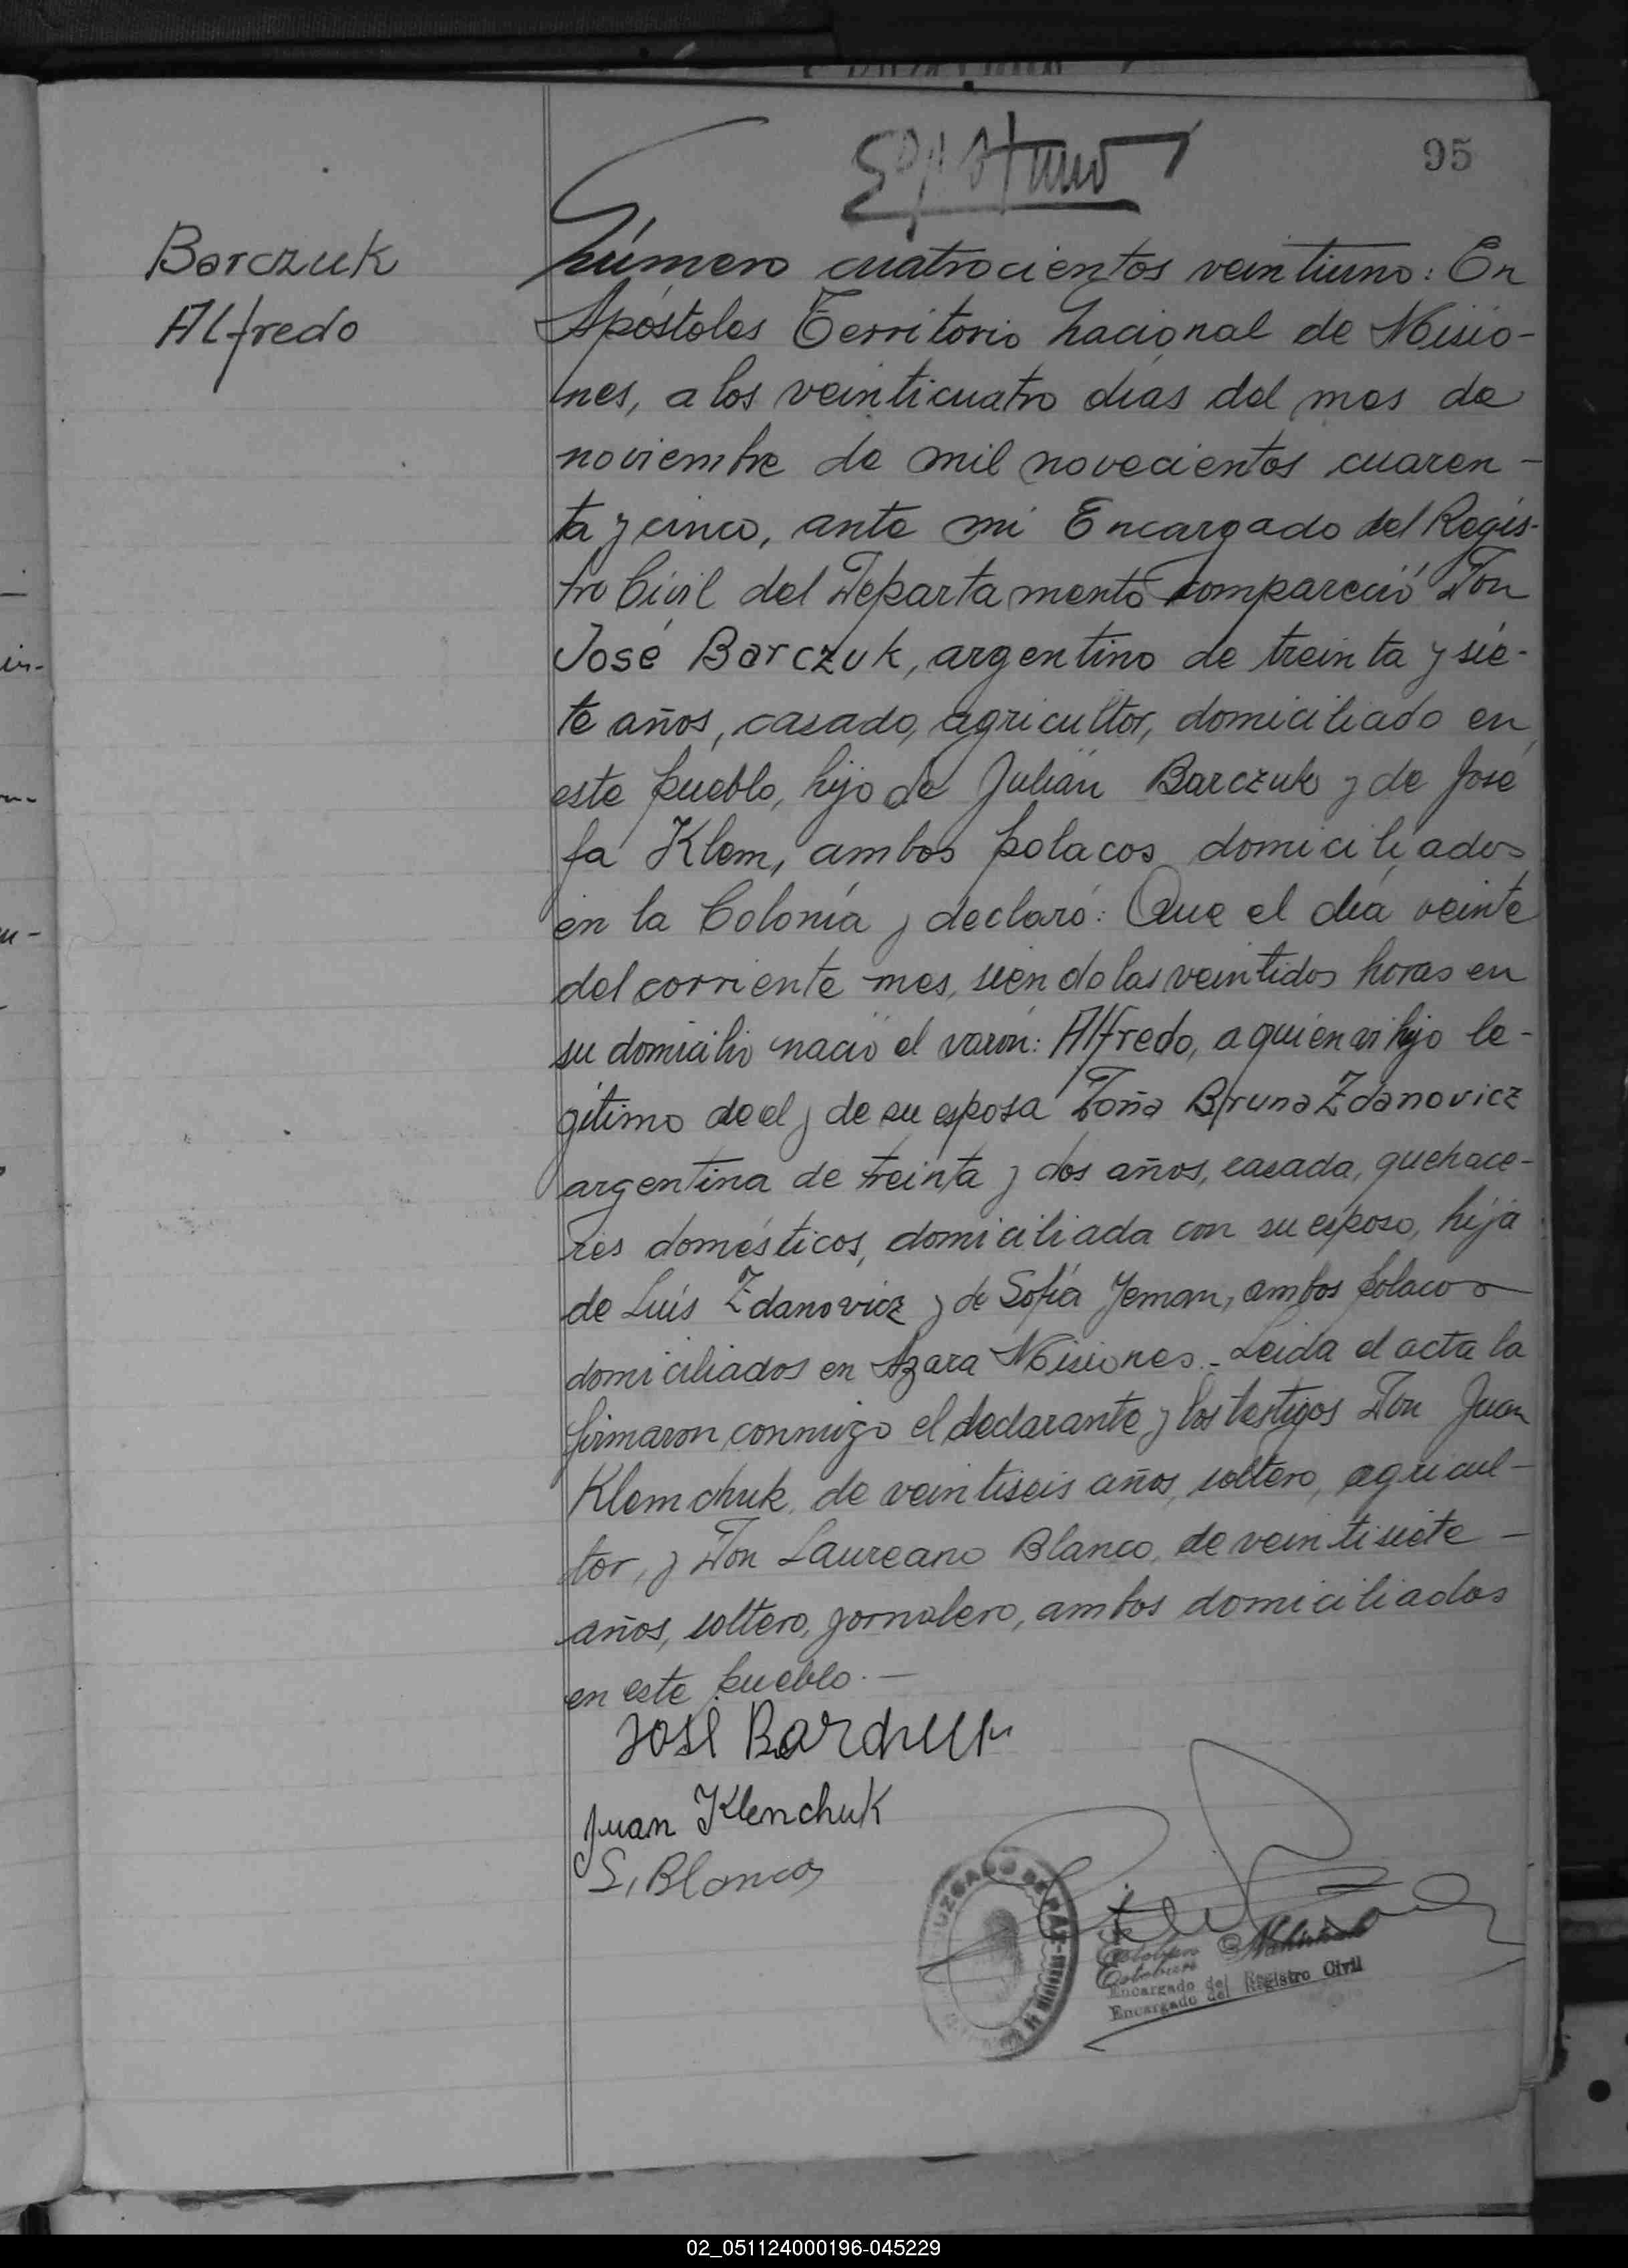 95
Barczuk
Alfredo
Número cuatrocientos veintiuno: En
Apóstoles Territorio Nacional de Misio-
nes, a los veinticuatro días del mes de
noviembre de mil novecientos cuaren-
ta y cinco, ante mi Encargado del Regis-
tro Civil del Departamento compareció Don
José Barczuk, argentino de treinta y sie-
te años, casado, agricultor, domiciliado en
este pueblo, hijo de Julián Barczuk y de José
fa Klem, ambos polacos domiciliados
en la Colonia y declaró: Que el día veinte
del corriente mes, siendo las veintidos horas en
su domicilio nació el varón: Alfredo, a quien es hijo le-
gítimo de el y de su esposa Doña Bruna Zdanovicz
argentina de treinta y dos años, casada, quehace-
res domésticos, domiciliada con su esposo, hija
de Luis Zdanovicz y de Sofía Jeman, ambos polacos
domiciliados en Azara Misiones.- Leida el acta la
firmaron conmigo el declarante y los testigos Don Juan
Klemchuk, de veintiseis años, soltero, agricul-
tor, y Don Laureano Blanco, de veintisiete -
años, soltero, jornalero, ambos domiciliados
en este pueblo.-
José Barchuk
Juan Klenchuk
L. Blanco
JUZGADO DE PAZ
Esteban
Esteban
Encargado del Registro Civil
Encargado del Registro Civil
02_051124000196-045229